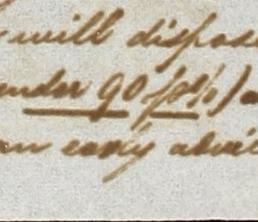 will dispose
under 90 p%)
an early advi